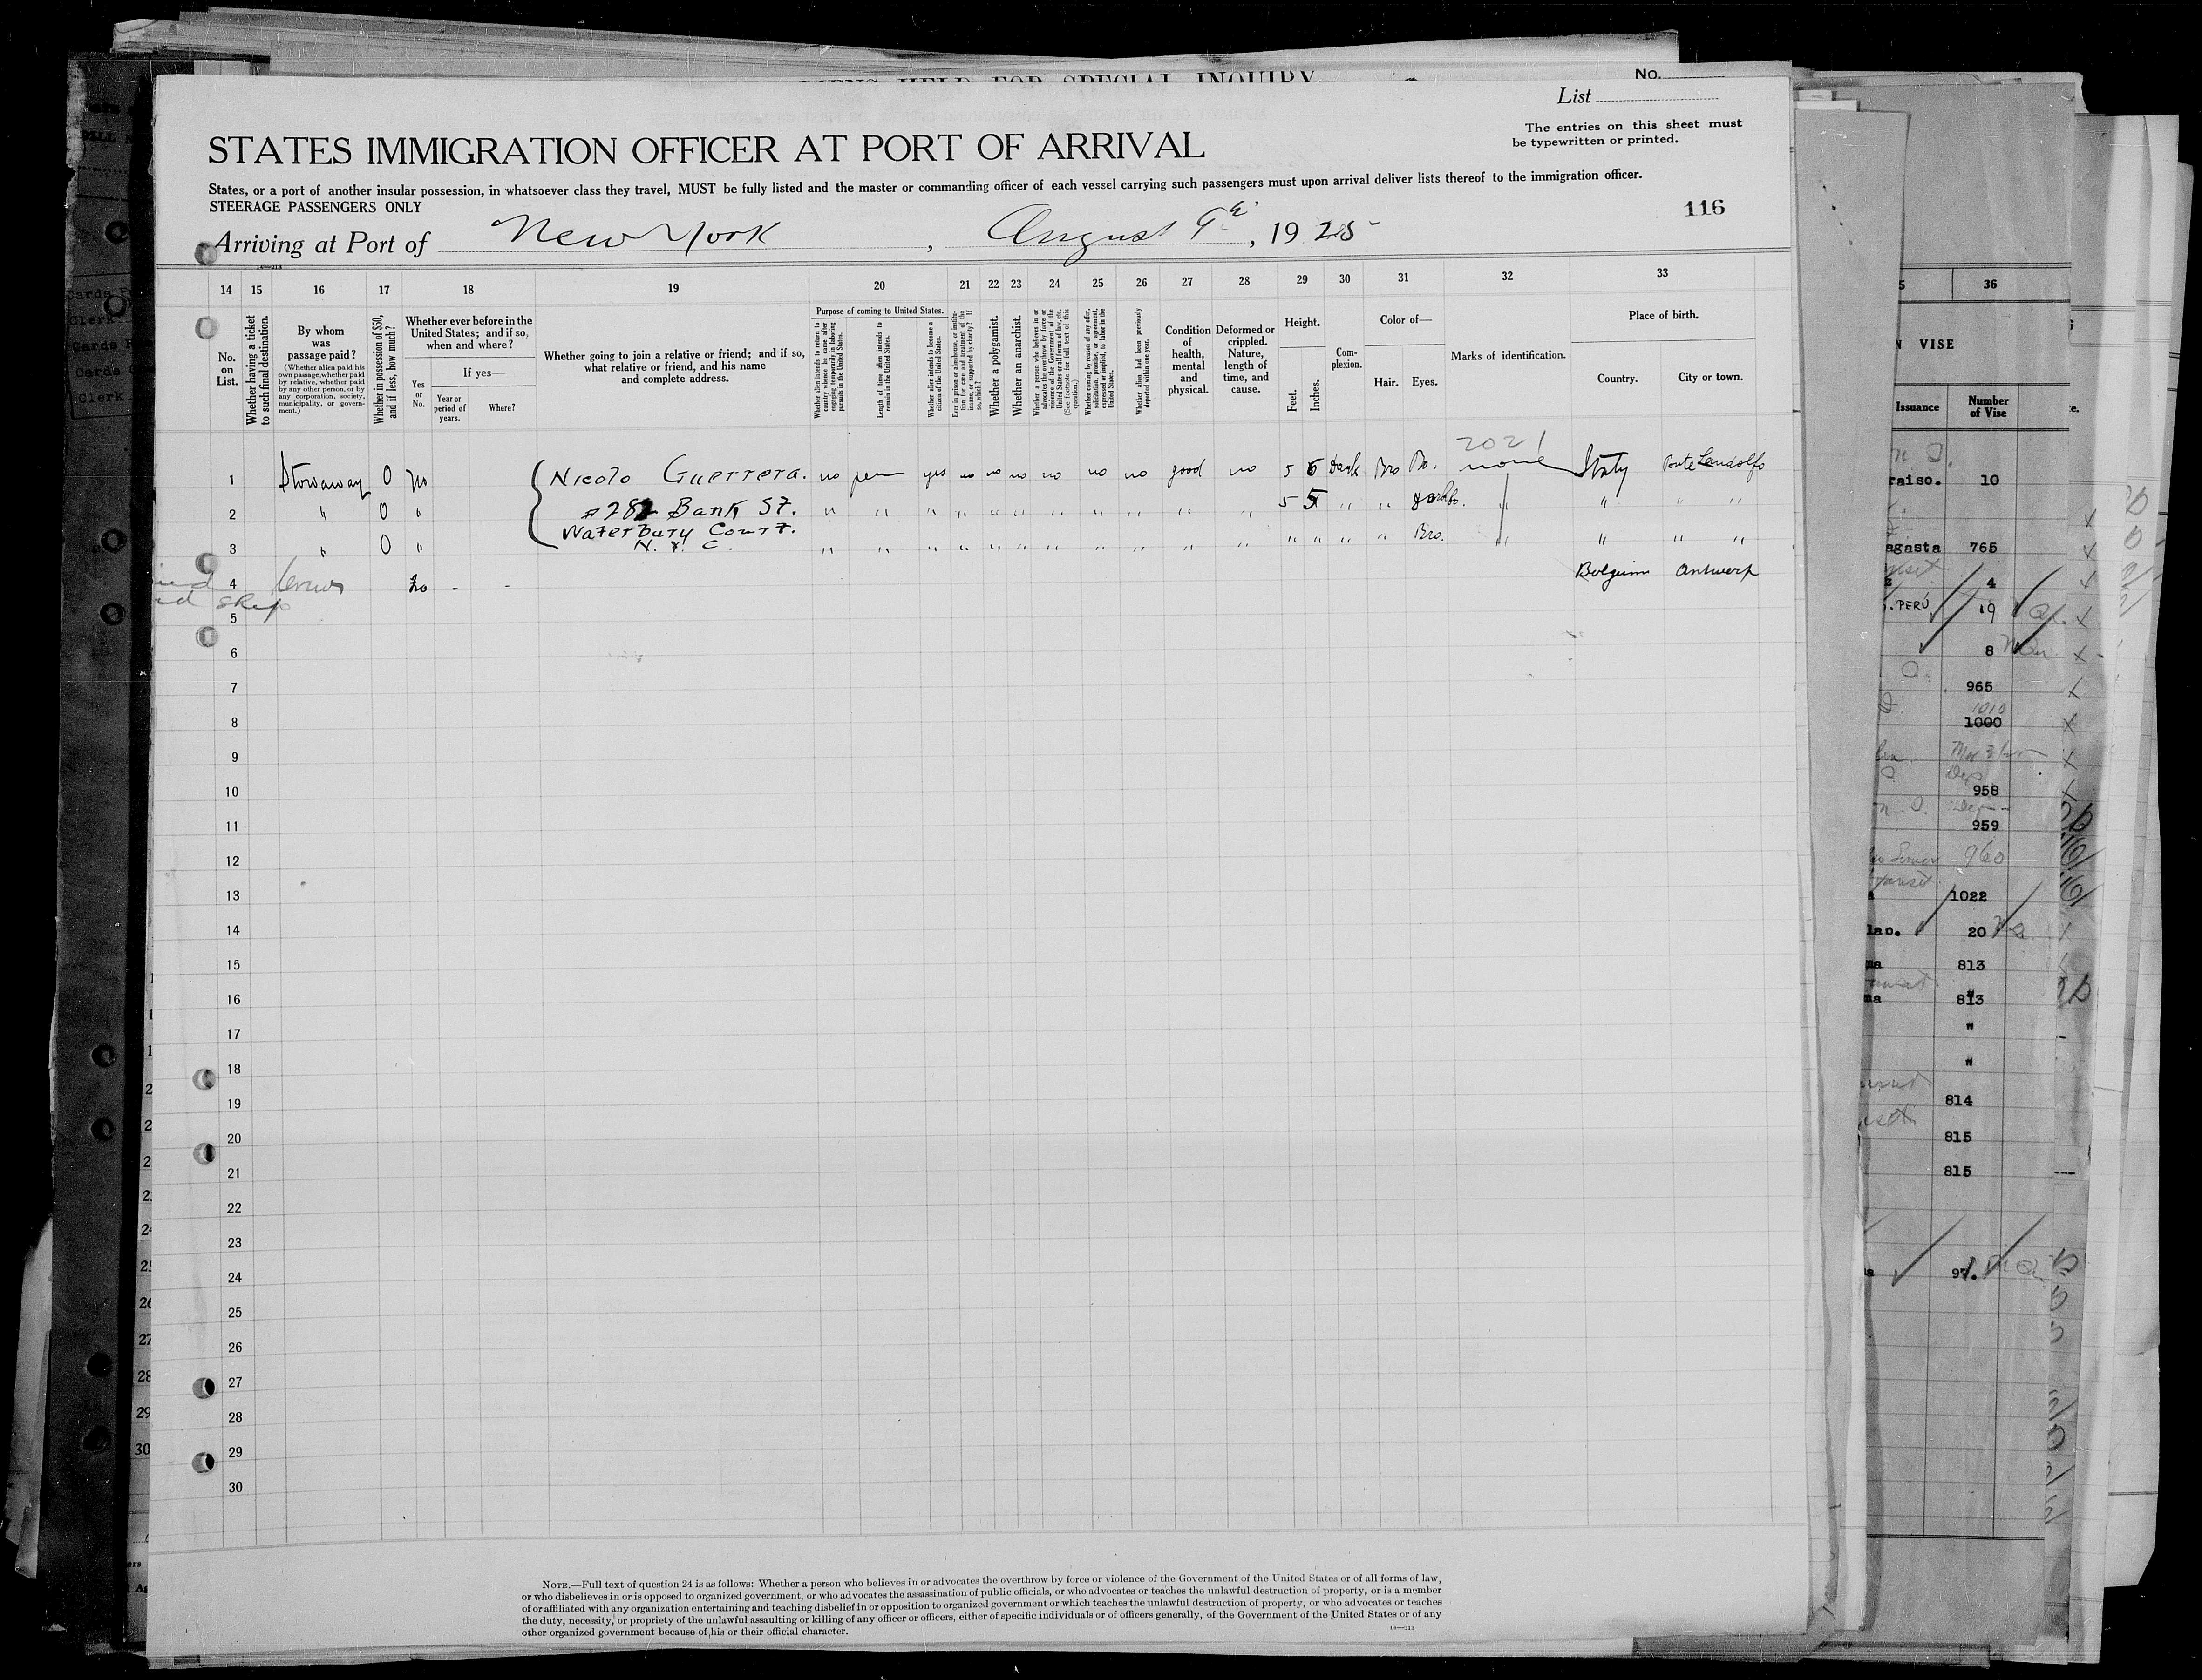 ALIENS HELD FOR SPECIAL INQUIRY
No.
List
The entries on this sheet must
be typewritten or printed.
STATES IMMIGRATION OFFICER AT PORT OF ARRIVAL
States, or a port of another insular possession, in whatsoever class they travel, MUST be fully listed and the master or commanding officer of each vessel carrying such passengers must upon arrival deliver lists thereof to the immigration officer.
STEERAGE PASSENGERS ONLY
116
Arriving at Port of New York, August 9th, 1925
14—213
14 15 16 17 18 19 20 21 22 23 24 25 26 27 28 29 30 31 32 33
No. on List.
Whether having a ticket to such final destination.
By whom was passage paid?
(Whether alien paid his own passage, whether paid by relative, whether paid by any other person, or by any corporation, society, municipality, or government.)
Whether in possession of $50, and if less, how much?
Whether ever before in the United States; and if so, when and where?
Yes or No.
If yes—
Year or period of years.
Where?
Whether going to join a relative or friend; and if so, what relative or friend, and his name and complete address.
Purpose of coming to United States.
Whether alien intends to return to country whence he came after engaging temporarily in laboring pursuits in the United States.
Length of time alien intends to remain in the United States.
Whether alien intends to become a citizen of the United States.
Ever in prison or almshouse, or institution for care and treatment of the insane, or supported by charity? If so, which?
Whether a polygamist.
Whether an anarchist.
Whether a person who believes in or advocates the overthrow by force or violence of the Government of the United States or all forms of law, etc. (See footnote for full text of this question.)
Whether coming by reason of any offer, solicitation, promise, or agreement, expressed or implied, to labor in the United States.
Whether alien had been previously deported within one year.
Condition of health, mental and physical.
Deformed or crippled. Nature, length of time, and cause.
Height.
Feet.
Inches.
Complexion.
Color of—
Hair.
Eyes.
Marks of identification.
Place of birth.
Country.
City or town.
2021
1 Stowaway 0 no Nicolo Guerrera. no per yes no no no no no no good no 5 6 Dark Bro Bro. none Italy Ponte Landolfo
2 " 0 " Bank St. " " " " " " " " " " " 5 5 " " " " " "
Waterbury Court.
3 " 0 " N. Y. C. " " " " " " " " " " " " " " " Bro. " " " "
4 no - - Belgium Antwerp
ship
5
6
7
8
9
10
11
12
13
14
15
16
17
18
19
20
21
22
23
24
25
26
27
28
29
30
NOTE.—Full text of question 24 is as follows: Whether a person who believes in or advocates the overthrow by force or violence of the Government of the United States or of all forms of law,
or who disbelieves in or is opposed to organized government, or who advocates the assassination of public officials, or who advocates or teaches the unlawful destruction of property, or is a member
of or affiliated with any organization entertaining and teaching disbelief in or opposition to organized government or which teaches the unlawful destruction of property, or who advocates or teaches
the duty, necessity, or propriety of the unlawful assaulting or killing of any officer or officers, either of specific individuals or of officers generally, of the Government of the United States or of any
other organized government because of his or their official character.
14—213
36
VISE
Issuance
Number of Vise
raiso. 10
agasta 765
4
. PERÚ 19
8
965
1010
1000
958
959
960
1022
lao. 20
ma 813
ma 813
"
"
814
815
815